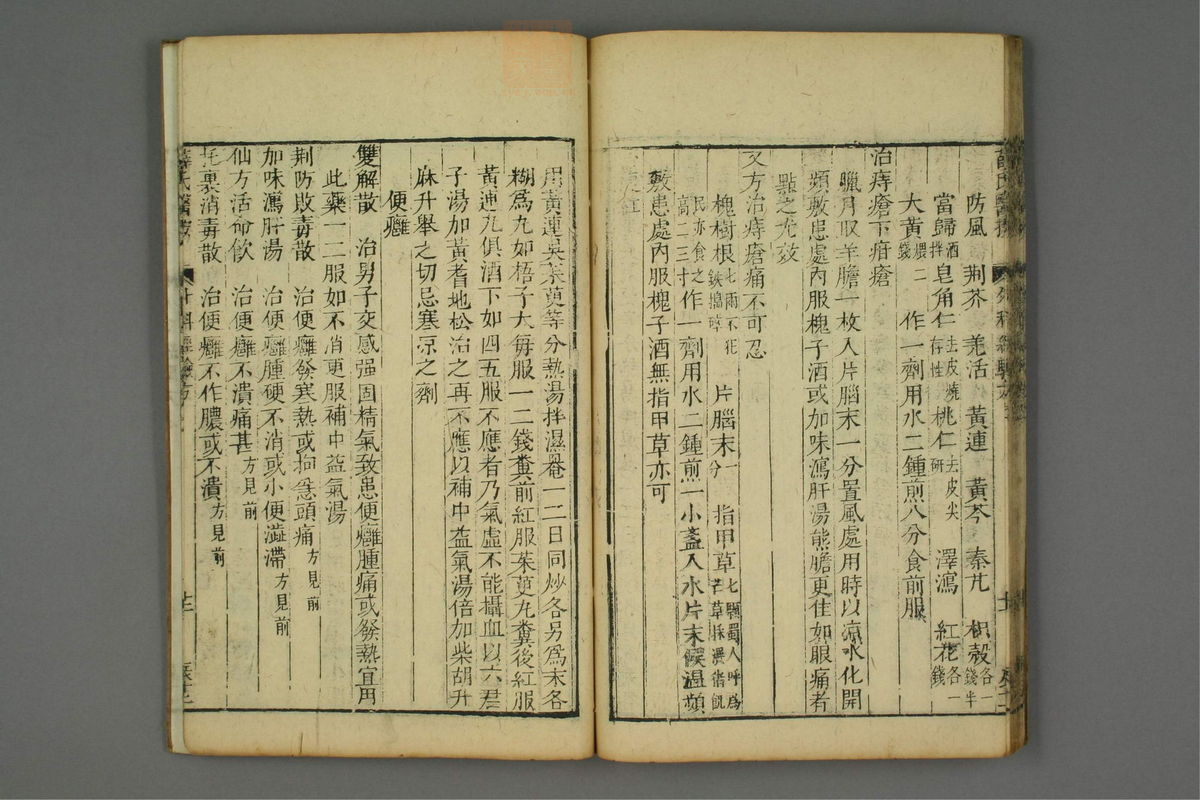 防風 荆芥 羌活 黃連 黃芩 秦艽 枳殼各一錢半
當歸酒拌 皂角仁去皮燒存性 桃仁去皮尖研 澤瀉 紅花各一錢
大黃煨二錢 作一劑用水二鍾煎八分食前服
治痔瘡下疳瘡
臘月取羊膽一枚入片腦末一分置風處用時以凉水化開
頻敷患處內服槐子酒或加味瀉肝湯熊膽更佳如眼痛者
點之尤效
又方治痔瘡痛不可忍
槐樹根七兩不犯鉄搗碎 片腦末一分 指甲草七顆蜀人呼爲
民亦食之高二三寸 作一劑用水二鍾煎一小盞入水片末候温頻
敷患處內服槐子酒無指甲草亦可
用黃連吳茱萸等分熱湯拌濕罨一二日同炒各另爲末各
糊爲丸如梧子大每服一二錢糞前紅服茱萸丸糞後紅服
黃連丸俱酒下如四五服不應者乃氣虛不能攝血以六君
子湯加黃耆地松治之再不應以補中益氣湯倍加柴胡升
麻升舉之切忌寒凉之劑
便癰
雙解散 治男子交感强固精氣致患便癰腫痛或發熱宜用
此藥一二服如不消更服補中益氣湯
荆防敗毒散 治便癰發寒熱或拘急頭痛方見前
加味瀉肝湯 治便癰腫硬不消或小便澁滯方見前
仙方活命飲 治便癰不潰痛甚方見前
托裏消毒散 治便癰不作膿或不潰方見前